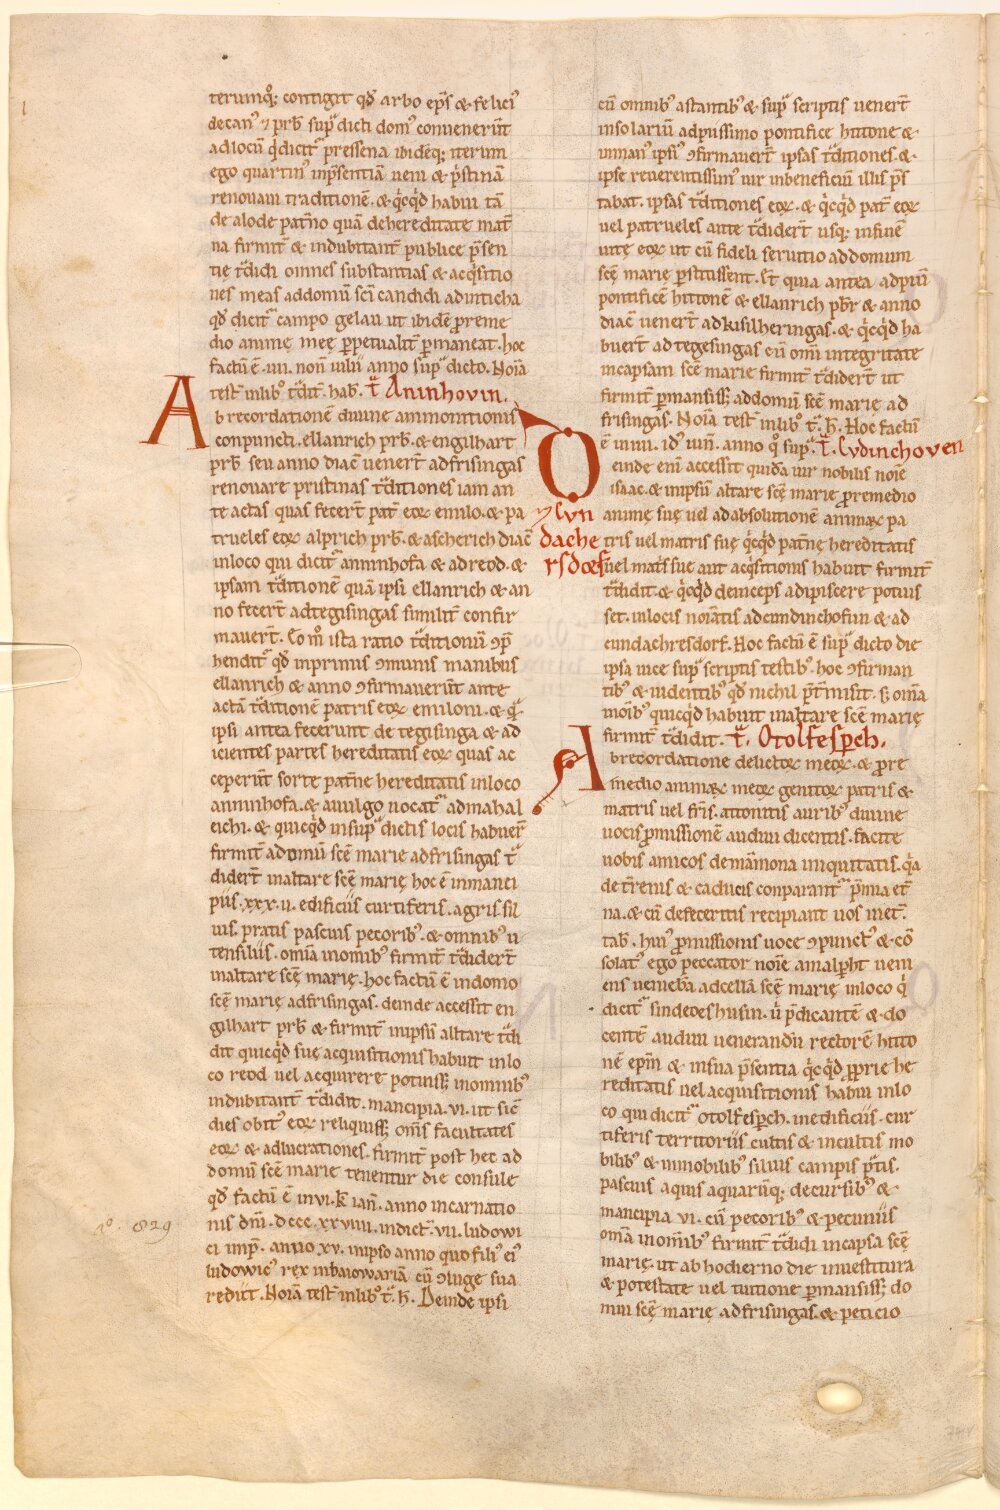 terumq; contigit qd arbo eps & felici9
decan9 7 prb sup dicti dom9 convenerūt
ad locū q dicit pressena ibidēq; iterum
ego quartin9 inpsentiā veni & pstinā
renovavi traditionē. & qcqd habui tā
de alode patno quā de hereditate mat
na firmit & indubitant publice psen
tie tdidi omnes substantias & acqsitio
nes meas ad domū sci candidi ad inticha
qd dicit campo gelau ut ibidē p reme
dio animę meę ppetualit pmaneat. hoc
factū ē .iiii. non iulii anno sup dicto. Noīa
test in lib9 tdit. hab. t Aninhovin.
A b recordationē divine ammonitionis
conpuncti. ellanrich prb. & engilhart
prb seu anno diac venert ad frisingas
renovare pristinas tditiones iam an
te actas quas fecert pat eoꝝ emilo. & pa
trueles eoꝝ alprich prb. & ascherich diac
in loco qui dicit aninhofa & ad reod. &
ipsam tditionē quā ipsi ellanrich & an
no fecert ad tegisingas similit confir
mavert. Com ista ratio tditionū ɔp
hendit qd inprimis ɔmunis manibus
ellanrich & anno ɔfirmaverūt ante
actā tditionē patris eoꝝ emiloni. & q
ipsi antea fecerunt de tegisinga & ad
icientes partes hereditatis eoꝝ quas ac
ceperūt sorte patne hereditatis in loco
aninhofa. & a vulgo vocat ad mahal
eichi. & quicqd in sup dictis locis habuer
firmit ad domū scē marie ad frisingas t
didert in altare scē marię hoc ē in manci
piis .xxx.ii. edificiis curtiferis. agris sil
vis. pratis pascuis pecorib9. & omnib9 u
tensiliis. omīa in omib9 firmit tdidert
in altare scē marię. hoc factū ē in domo
scē marię ad frisingas. deinde accessit en
gilhart prb & firmit in ipsū altare tdi
dit quicqd suę acquisitionis habuit in lo
co reod vel acquirere potuiss; in omnib9
indubitant tdidit. mancipia .vi. ut sic
dies obit9 eoꝝ reliquiss; oms facultates
eoꝝ & adlucrationes. firmit post hec ad
domū scē marie tenentur die consule
qd factū ē in vi. k ian. anno incarnatio
nis dni. dccc.xxviiii. indict. vii. ludowi
ci imp. anno xv. in ipso anno quo fili9 ei9
ludowic9 rex in baiowariā cū ɔiuge sua
rediit. Noīa test in lib9 t. h. Deinde ipsi
Aº. 829
cū omnib9 astantib9 & sup scriptis venert
in solariū ad piissimo pontifice hittone &
in man9 ipsi9 ɔfirmavert ipsas tditiones. &
ipse reverentissim9 vir in beneficiū illis ps
tabat. ipsas tditiones eoꝝ. & qcqd pat eoꝝ
vel patrueles ante tdidert usq; in finē
vite eoꝝ ut cū fideli servitio ad domum
scę marie pstitissent. Et quia antea ad piū
pontificē hittonē & ellanrich pbr & anno
diac venert ad kisilheringas. & qcqd ha
buert ad tegesingas cū omi integritate
in capsam scē marie firmit tdidert ut
firmit pmansiss; ad domū scē marie ad
frisingas. Noīa test in lib9 t. h. Hoc factū
ē in iiii. id9 iun. anno q sup. t. Lvdinchoven
D einde eni accessit quida vir nobilis noīe
isaac. & in ipsū altare scē marię p remedio
y Lvn animę suę vel ad absolutionē animaꝝ pa
dache tris vel matris suę qcqd patne hereditatis
rsdorf vel mats sue aut acqsitionis habuit firmit
tdidit. & qcqd deinceps adipiscere potuis
set. in locis noīatis ad cundinchofun & ad
cundachresdorf. Hoc factū ē sup dicto die
ipsa vice sup scriptis testib9. hoc ɔfirman
tib9 & videntib9 qd nichil ptmisit. s; omīa
in oīb9 quicqd habuit in altare scē marię
firmit tdidit. t. Otolfespch.
A b recordatione delictoꝝ meoꝝ. & p re
medio animaꝝ meoꝝ genitoꝝ patris &
matris vel fris. attonitis aurib9 divine
vocis pmissionē audivi dicentis. facite
vobis amicos de māmona iniquitatis. qa
de trenis & caducis conparant pmia et
na. & cū defeceritis recipiant vos in et
tab. hui9 pmissionis voce ɔpunct9 & cō
solat9 ego peccator noīe amalpht veni
ens veniebā ad cellā scē marię in loco q
dicit sindeoeshusin. u pdicantē & do
centē audivi venerandū rectorē hitto
nē epm & in sua psentia qcqd pprie he
reditatis vel acquisitionis habui in lo
co qui dicit otolfespch. in edificiis. cur
tiferis territoriis cultis & incultis mo
bilib9 & inmobilib9 silvis campis ptis.
pascuis aquis aquarūq; decursib9 &
mancipia vi. cū pecorib9 & pecuniis
omīa in omib9 firmit tdidi in capsa scē
marię. ut ab hodierno die in vestitura
& potestate vel tuitione pmansiss; do
mui scē marię ad frisingas. & peticio